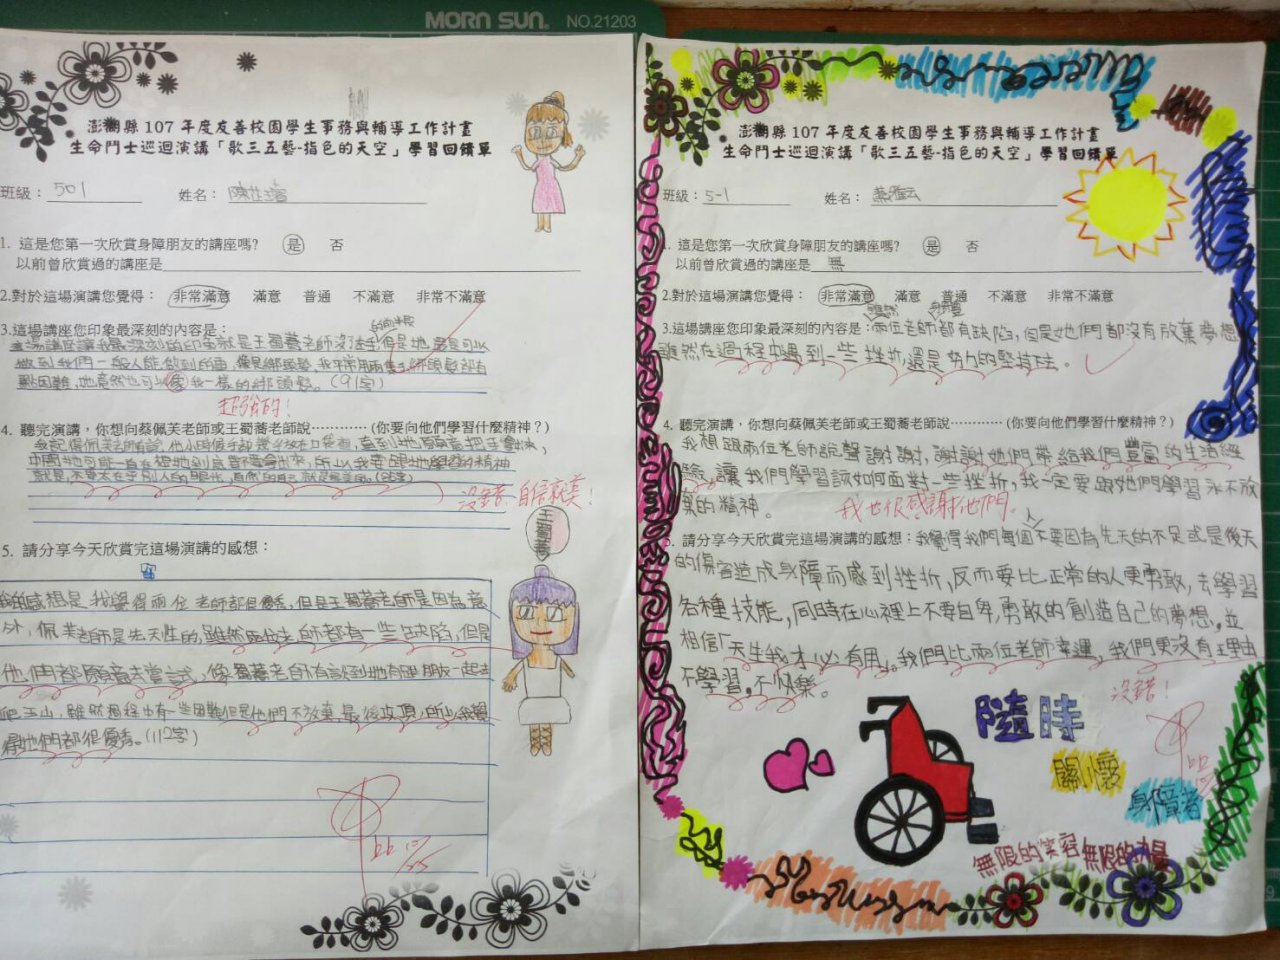 MORN SUN. NO.21203
澎湖縣 107 年度友善校園學生事務與輔導工作計畫
生命鬥士巡迴演講「歌三五藝-指色的天空」學習回饋單
班級：501 姓名：陳
1. 這是您第一次欣賞身障朋友的講座嗎? 是 否
以前曾欣賞過的講座是
2.對於這場演講您覺得： 非常滿意 滿意 普通 不滿意 非常不滿意
3.這場講座您印象最深刻的內容是：
本場講座讓我最深刻的印象就是王蜀蕎老師沒法 但是她還是可以
做到我們一般人能做到的事,像是綁頭髮,我平常用兩隻手綁頭髮都有
點困難,她竟然也可以像我一樣的綁頭髮。(91字)
超強的!
4. 聽完演講，你想向蔡佩芙老師或王蜀蕎老師說…………（你要向他們學習什麼精神?）
我記得佩芙老師說,他小時候手都 放在口袋裡,直到她願意把手拿出來,
中間她可能一直在想她到底要不要拿出來,所以我要跟她學習的精神
就是,不要太在乎別人的眼光,自然的自己就是最美的。
沒錯 自信就美!
王蜀蕎
5. 請分享今天欣賞完這場演講的感想：
我的感想是我覺得兩位老師都很優秀,但是王蜀蕎老師是因為意
外,佩芙老師是先天性的,雖然兩位老師都有一些缺陷,但是
他們都願意去嘗試,像蜀蕎老師有談到她有跟朋友一起去
爬玉山,雖然過程中有一些困難但是他們不放棄,最後攻頂,所以我覺
得她們都很優秀。(112字)
澎湖縣 107 年度友善校園學生事務與輔導工作計畫
生命鬥士巡迴演講「歌三五藝-指色的天空」學習回饋單
班級：5-1 姓名：
1. 這是您第一次欣賞身障朋友的講座嗎? 是 否
以前曾欣賞過的講座是 無
2.對於這場演講您覺得： 非常滿意 滿意 普通 不滿意 非常不滿意
3.這場講座您印象最深刻的內容是：兩位老師都有缺陷,但是她們都沒有放棄夢想
雖然在過程中遇到一些挫折,還是努力的堅持下去。
4. 聽完演講，你想向蔡佩芙老師或王蜀蕎老師說…………（你要向他們學習什麼精神?）
我想跟兩位老師說聲謝謝,謝謝她們帶給我們豐富的生活經
驗,讓我們學習該如何面對一些挫折,我一定要跟她們學習永不放
棄的精神。 我也很感謝他們。
5. 請分享今天欣賞完這場演講的感想：我覺得我們每個人不要因為先天的不足或是後天
的傷害造成身障而感到挫折,反而要比正常的人更勇敢,去學習
各種技能,同時在心裡上不要自卑,勇敢的創造自己的夢想,並
相信「天生我才必有用」。我們比兩位老師幸運,我們更沒有理由
不學習,不快樂。 沒錯!
隨時
關懷
身障者
無限的笑容無限的力量